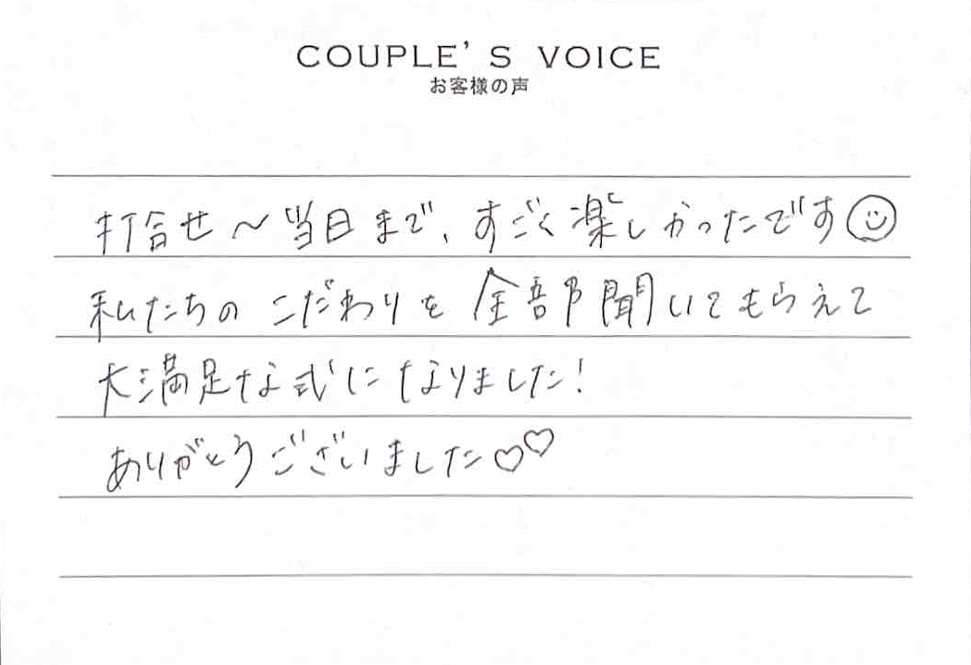 COUPLE'S VOICE
お客様の声
打合せ～当日まで、すごく楽しかったです☺
私たちのこだわりを全部聞いてもらえて
大満足な式になりました!
ありがとうございました♡♡